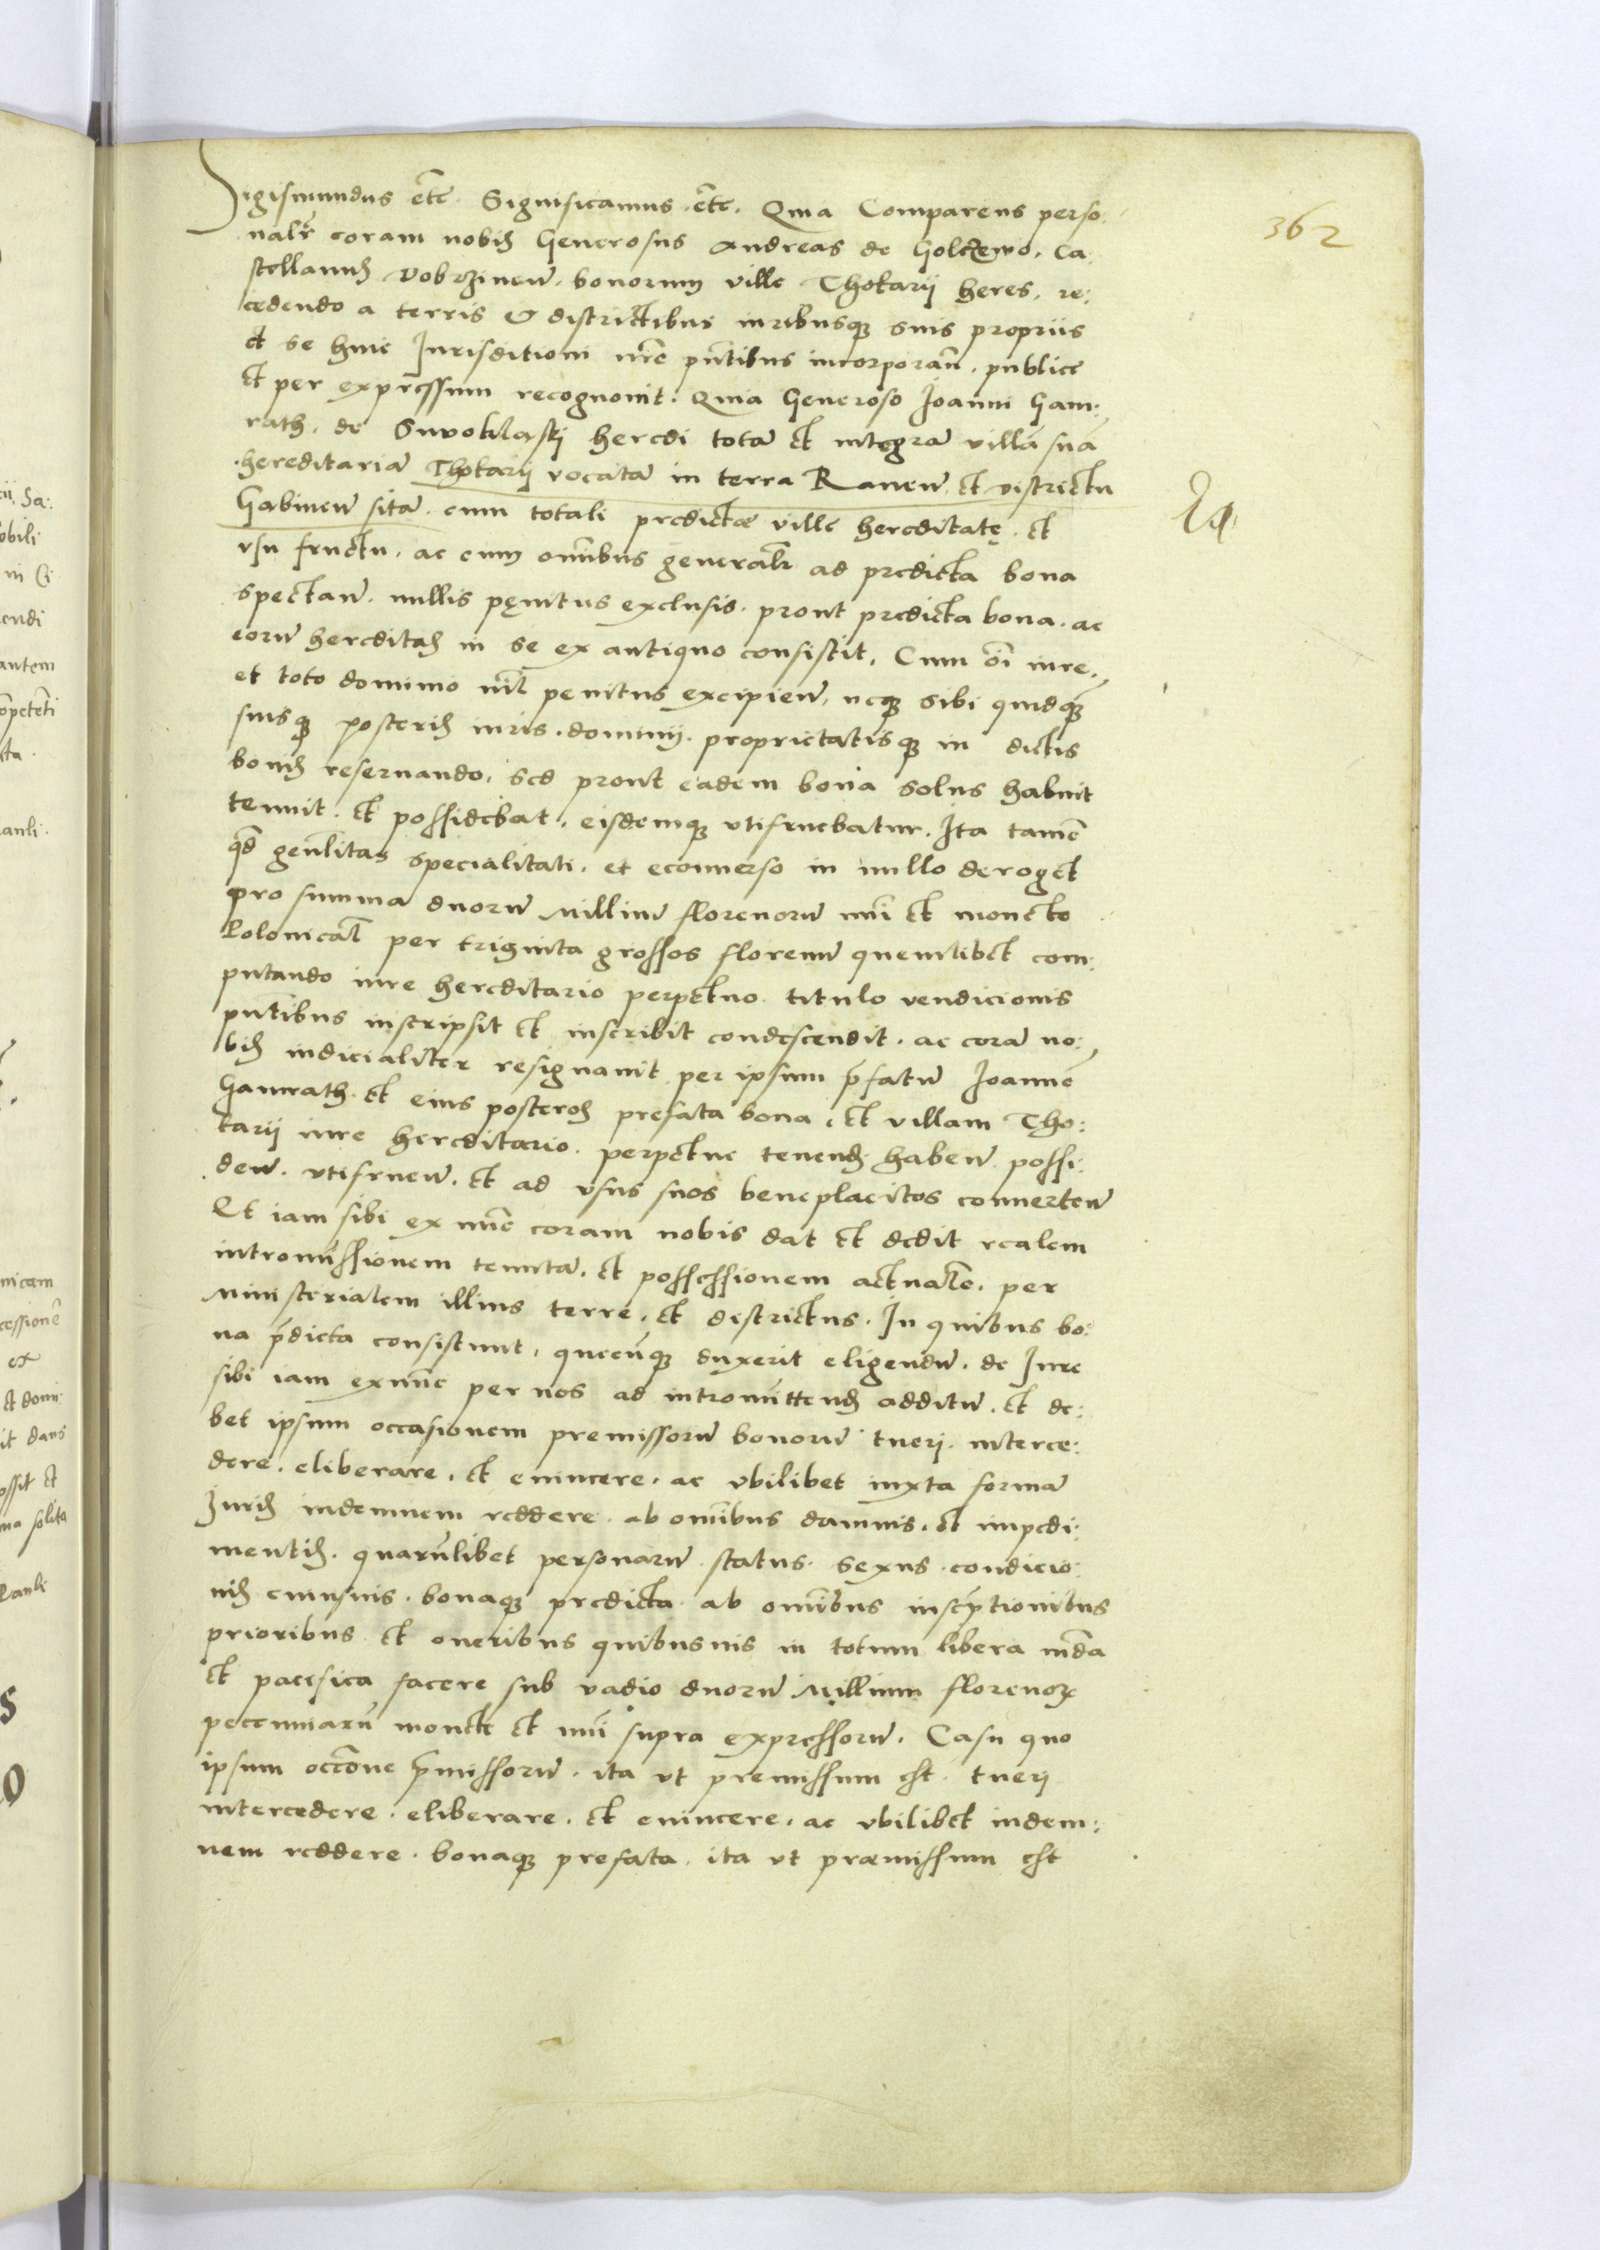 362
Sigismundus etc̃. Significamus .etc̃. Quia Comparens perso:
nalr̃ coram nobis Generosus Andreas de Golczewo, Ca:
stellanus Dobrzinen̄. bonorum ville Thokarij heres, re:
cedendo a terris & districtibus iuribusq̃ suis propriis
et se huic Jurisditioni nrẽ pñtibus incorporañ. publice
et per expressum recognouit. Quia Generoso Joanni Gam:
rath. de Suvokląski heredi totã et integrã villã suã
hereditariã Thokarij vocatã in terra Rauen̄ et districtu
Gabinen̄ sitã. cum totali predictæ ville hereditatę. et
vsu fructu. ac cum oñibus generalr̃ ad predicta bona
spectan̄. nullis pęnitus exclusis. prout predicta bona. ac
eorũ hereditas in se ex antiquo consistit, Cum oĩ iure,
et toto dominio nĩl penitus excipien̄, neq̃ sibi quidq̃
suisq̃ posteris iuris. dominij. proprietatisq̃ in dictis
bonis reseruando, sed prout eadem bona solus habuit
tenuit. et possidebat, eisdemq̃ utifruebatur. Ita tamẽ
qđ genĩlitas specialitati, et econuerso in nullo deroget
pro summa duorũ Millium florenorũ nũi et monete
Polonicał per triginta grossos florenũ quemlibet com:
putando iure hereditario perpetuo titulo vendicionis
pñtibus inscripsit et inscribit condescendit. ac corã no:
bis iudicialiter resignauit per ipsum p̃fatũ Joannẽ
Gamrath. et eius posteros prefata bona, et villam Tho:
karij iure hereditario. perpetue tenend̃ haben̄ possi:
den̄. vtifruen̄. et ad vsus suos beneplacitos conuerten̄
Et iam sibi ex nũc coram nobis dat et dedit realem
intromissionem tenutã. et possessionem actualẽ. per
Ministerialem illius terre. et districtus. In quibus bo:
na p̃dicta consistunt, quecũq̃ duxerit eligendũ. de Jure
sibi iam exnũc per nos ad intromittend̃ additũ. et de:
bet ipsum occasionem premissorũ bonorũ tueri. interce:
dere. eliberare. et euincere. ac vbilibet iuxta formã
Juris indemnem reddere. ab oñibus damnis. et impedi:
mentis. quarũlibet personarũ status. sexus. condicio:
nis cuiusuis. bonaq̃ predicta ab oñibus inscp̃tionibus
prioribus et oneribus quibusuis in totum libera mũda
et pacifica facere sub vadio duorũ Millium florenoꝝ
pecuniarũ monete et nũi supra expressorũ. Casu quo
ipsum occõne p̃missorũ. ita vt premissum est. tueri
intercedere. eliberare. et euincere. ac vbilibet indem:
nem reddere. bonaq̃ prefata. ita vt præmissum est